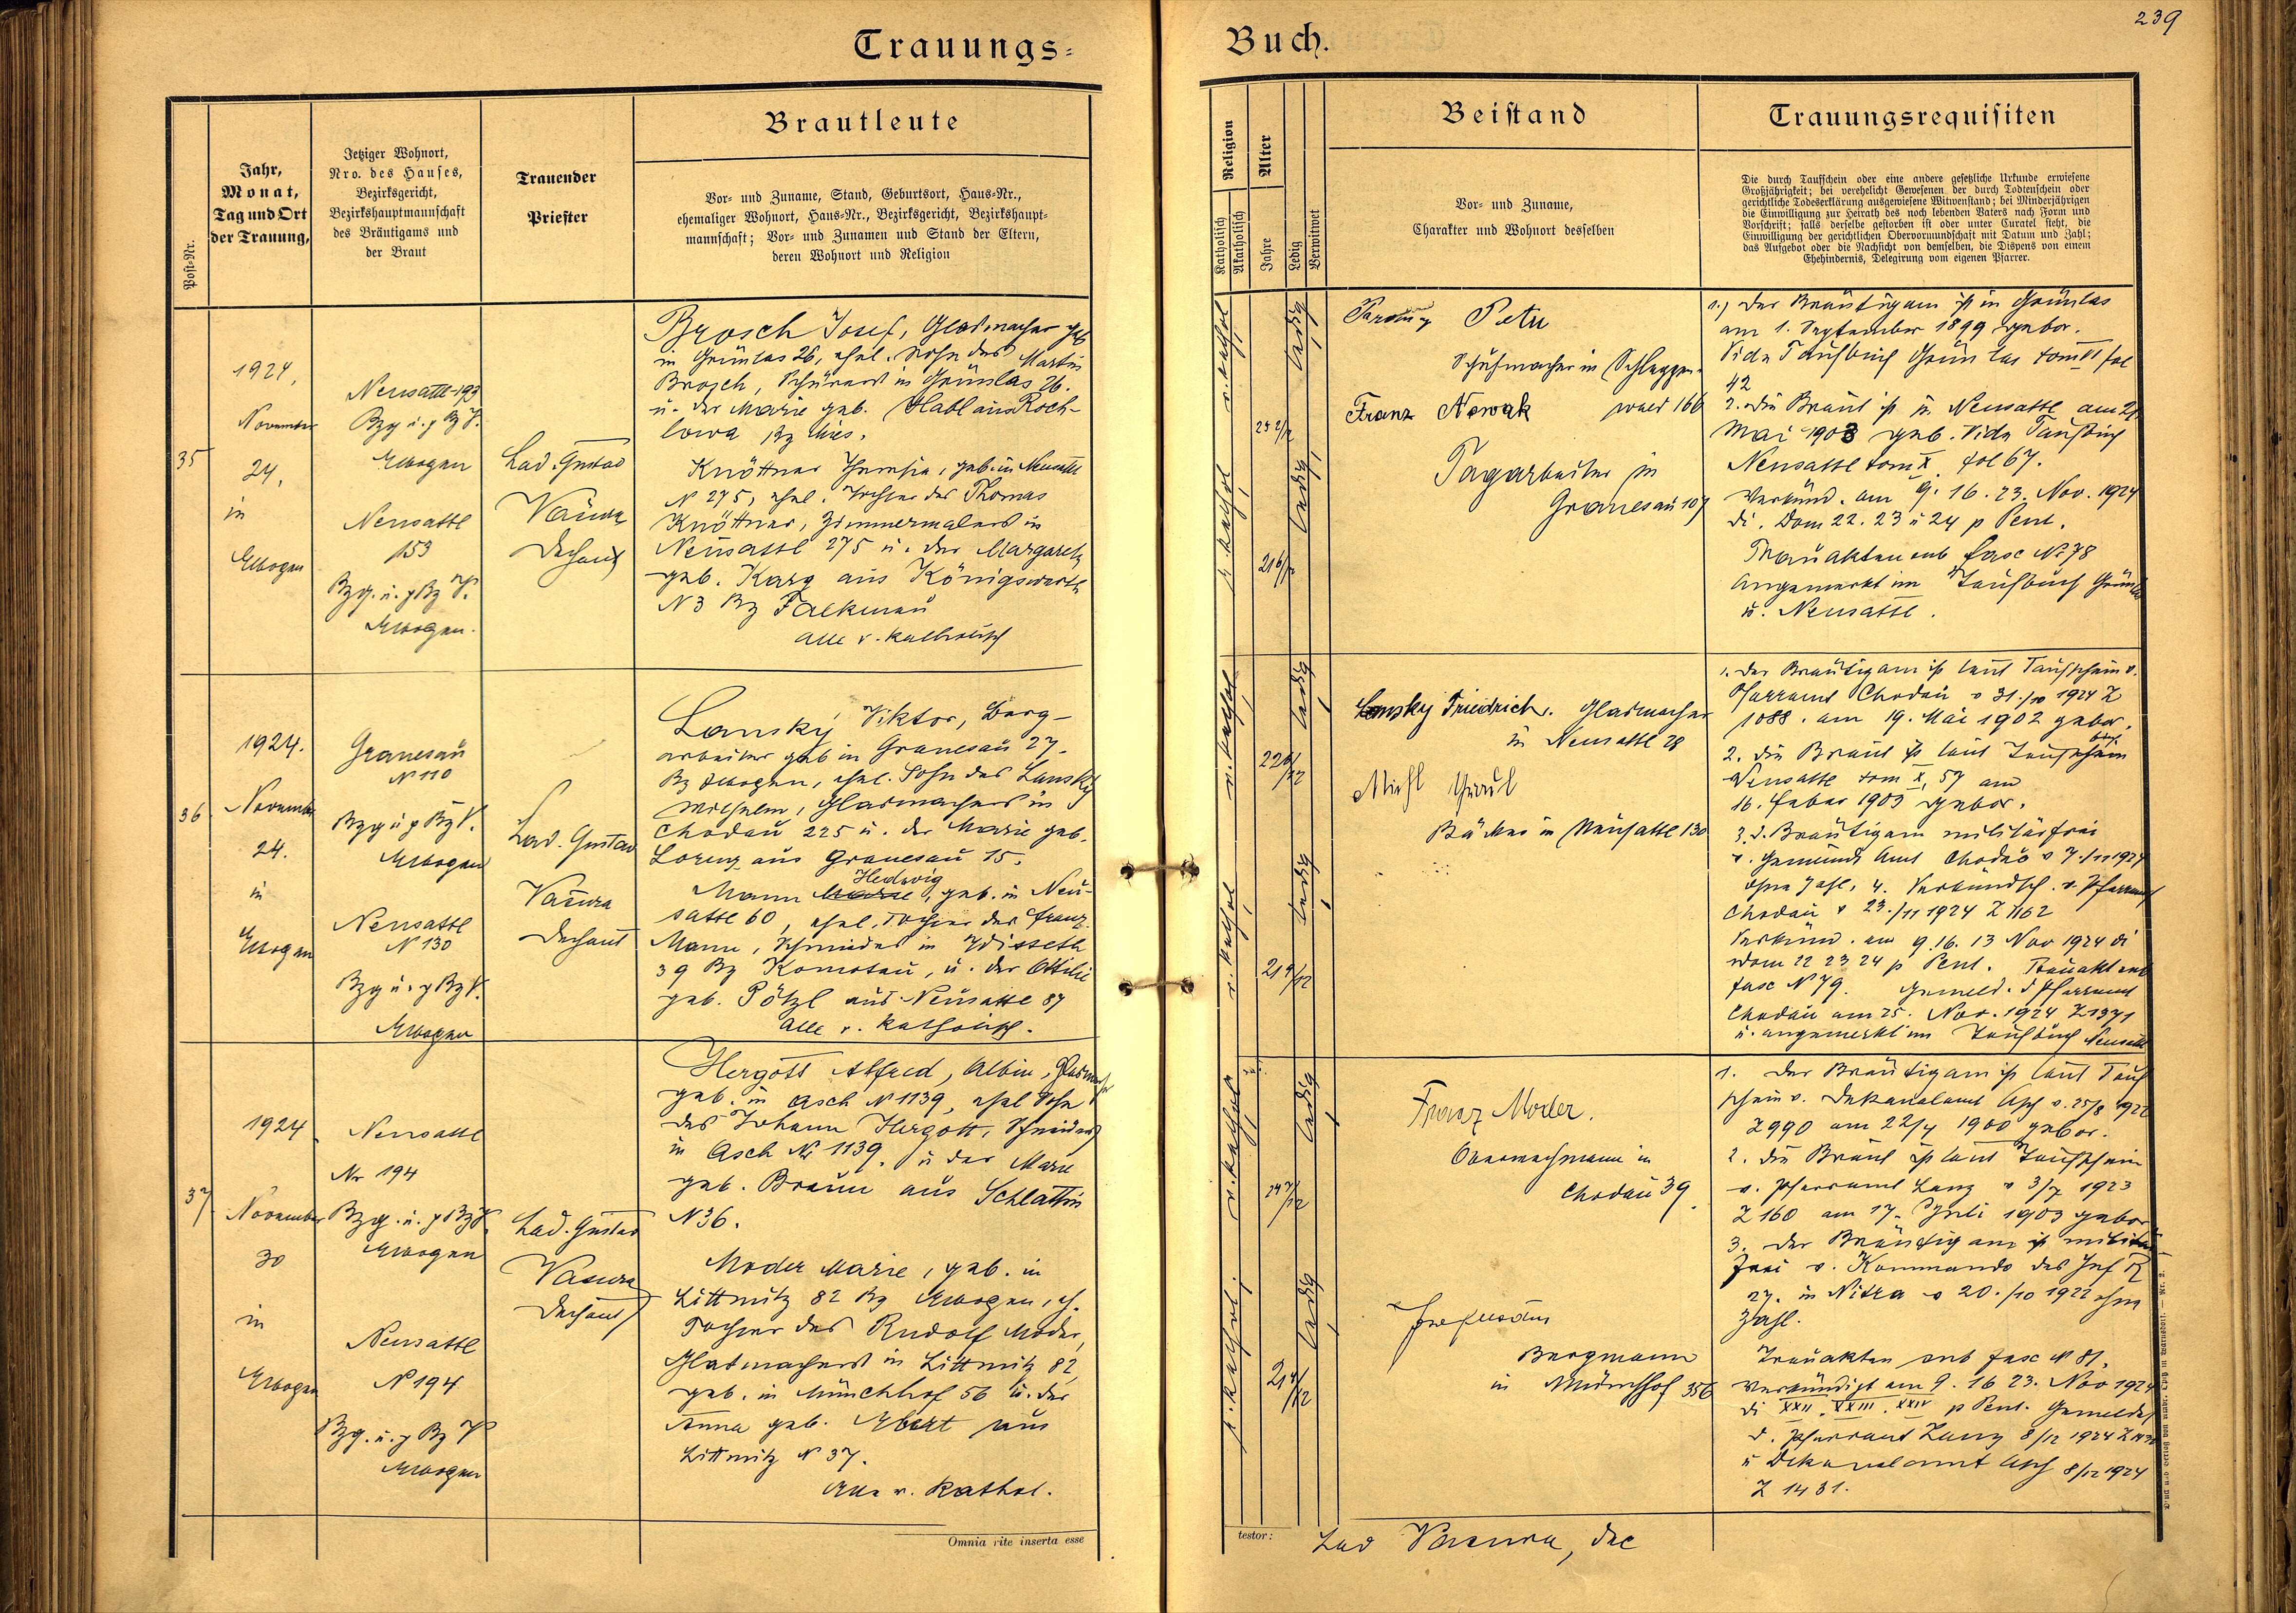 239
Trauungs-
Buch.
Post-Nr.
Jahr,
Monat,
Tag und Ort
der Trauung,
Jetziger Wohnort,
Nro. des Hauses,
Bezirksgericht,
Bezirkshauptmannschaft
des Bräutigams und
der Braut
Trauender
Priester
Brautleute
Vor- und Zuname, Stand, Geburtsort, Haus-Nr.,
ehemaliger Wohnort, Haus-Nr., Bezirksgericht, Bezirkshaupt-
mannschaft; Vor- und Zunamen und Stand der Eltern,
deren Wohnort und Religion
Religion
Katholisch
Akatholisch
Alter
Jahre
Ledig
Verwitwet
Beistand
Vor- und Zuname,
Charakter und Wohnort desselben
Trauungsrequisiten
Die durch Taufschein oder eine andere gesetzliche Urkunde erwiesene
Großjährigkeit; bei verehelicht Gewesenen der durch Todtenschein oder
gerichtliche Todeserklärung ausgewiesene Witwenstand; bei Minderjährigen
die Einwilligung zur Heirath des noch lebenden Vaters nach Form und
Vorschrift; falls derselbe gestorben ist oder unter Curatel steht, die
Einwilligung der gerichtlichen Obervormundschaft mit Datum und Zahl;
das Aufgebot oder die Nachsicht von demselben, die Dispens von einem
Ehehindernis, Delegirung vom eigenen Pfarrer.
35
1924,
November
24,
in
Elbogen
Neusattl 193
Bzg u. p Bz V.
Elbogen
Neusattl
153
Bzg. u. p Bz V.
Elbogen.
Lad. Gustav
Vačura
Dechant
Brosch Josef, Glasmacher geb
in Grünlas 26, ehel. Sohn des Martin
Brosch, Schürers in Grünlas 26.
u. der Marie geb. Habl aus Roch-
lowa Bz Mies.
Knöttner Theresia, geb. in Neusattl
N 275, ehel. Tochter des Thomas
Knöttner, Zimmermalers in
Neusattl 275 u. der Margareth
geb. Karg aus Königswerth
N 3 Bz Falkenau
alle r. katholisch
r. kathol
r. kathol
ledig
ledig
25 2/12
21 6/12
Petu
Schuhmacher in Schlaggen-
wald 166
Franz Nowak
Tagarbeiter in
Granesau 107
1.) Der Bräutigam ist in Grünlas
am 1. September 1899 gebor.
Vide Taufbuch Grünlas tom VI fol
42
2. die Braut ist in Neusattl am 21
Mai 1903 geb. Vide Taufbuch
Neusattl tom X fol 67.
Verkünd. am 9. 16. 23. Nov. 1924
di. Dom 22. 23 u 24 p Pent.
Trauakten sub fasc Nr 78
angemerkt im Taufbuch Grünlas
u. Neusattl.
36
1924.
November
24.
in
Elbogen
Granesau
N 110
Bzg u p Bz V.
Elbogen
Neusattl
N 130
Bzg u. p Bz V.
Elbogen
Lad. Gustav
Vačura
Dechant
Lansky Viktor, Berg-
arbeiter geb in Granesau 27.
Bz Elbogen, ehel. Sohn des Lansky
Wilhelm, Glasmachers in
Chodau 225 u. der Marie geb.
Lorenz aus Granesau 15.
Hedwig
Mann Marie, geb. in Neu-
sattl 60, ehel. Tochter des Franz
Mann, Schmiedes in
39 Bz Komotau, u. der Ottilie
geb. Pötzl aus Neusattl 87
alle r. katholisch.
r. kathol
r. kathol
ledig
ledig
22 6/12
21 9/12
Lansky Friedrich. Glasmacher
in Neusattl 28
Michl
Bäcker in Neusattl 130
1. Der Bräutigam ist laut Taufschein v.
Pfarramt Chodau v 31./10 1924 Z
1088. am 19. Mai 1902 gebor.
2. die Braut ist laut Taufbuch
Neusattl tom X, 57 am
16. Feber 1903 gebor.
3. d. Bräutigam militärfrei
v. Gemeinde Amt Chodau v 7./11 1924
ohne Zahl, 4. Verkündsch. v. Pfarramt
Chodau v 23./11 1924 Z 1162
Verkünd. am 9. 16. 13 Nov 1924 di
Dom 22 23 24 p Pent. Trauakt sub
fasc N 79. Gemeld. d Pfarramt
Chodau am 25. Nov. 1924 Z 1371
u. angemerkt im Taufbuch Neusattl
37
1924
November
30
in
Elbogen
Neusattl
Nr 194
Bzg. u. p Bz V.
Elbogen
Neusattl
N 194
Bzg. u. p Bz V
Elbogen
Lad. Gustav
Vačura
Dechant
Hergott Alfred, Albin, Glasmacher
geb. in Asch N 1139, ehel Sohn
des Johann Hergott, Schneiders
in Asch Nr 1139. u der Marie
geb. Braun aus Schlattin
N 36.
Moder Marie, geb. in
Littmitz 82 Bz Elbogen, eh.
Tochter des Rudolf Moder,
Glasmachers in Littmitz 82,
geb. in Münchhof 56 u. der
Anna geb. Ebert aus
Littmitz N 37.
Alle r. kathol.
r. kathol
r. kathol.
ledig
ledig
24 7/12
21 4/12
Franz Moder.
in
Chodau 39.
Bergmann
in Münchhof 356
1. Der Bräutigam ist laut Tauf
schein v. Dekanalamt Asch v. 25/8 1922
Z 990 am 22/4 1900 gebor.
2. die Braut ist laut Taufschein
v. Pfarramt Lanz v 3/7 1923
Z 160 am 17. Juli 1903 gebor
3. der Bräutigam ist militär-
frei v. Kommando des Inf R
27. in Nitra v 20./10 1922 ohne
Zahl.
Trauakten sub fasc N 81.
Verkündigt am 9. 16 23. Nov 1924
di XXII. XXIII. XXIV p Pent. Gemeldet
d. Pfarramt Lanz 8/12 1924
u Dekanalamt Asch 8/12 1924
Z 1431.
Omnia rite inserta esse
testor:
Lad Vačura, dec